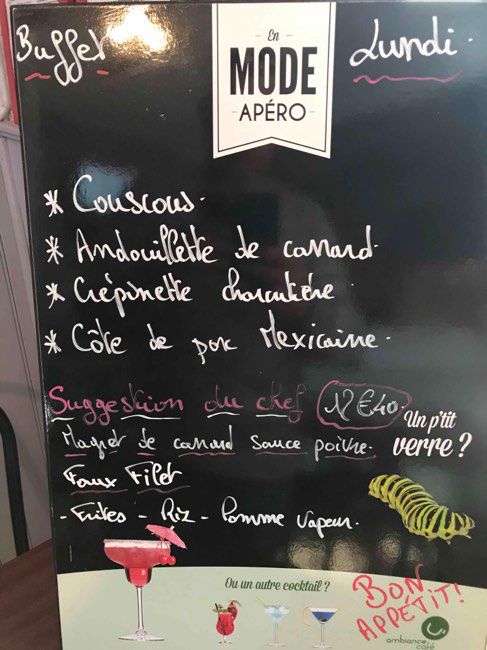 Buffet
En
MODE
APÉRO
Lundi.
* Couscous.
* Andouillette de canard.
* Crépinette charcutière.
* Côte de porc Mexicaine.
Suggestion du chef 12€40.
Magret de canard sauce poivre.
Un p'tit
verre ?
Faux Filet
- Frites - Riz - Pomme vapeur.
Ou un autre cocktail ?
BON
APPETIT!
ambiance
café